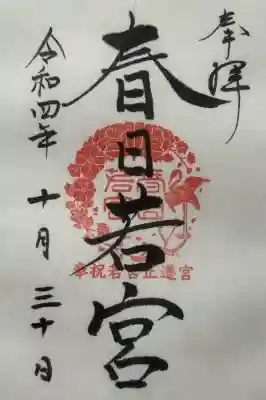 奉拝
春日若宮
奉祝若宮正遷宮
令和四年 十月 三十日